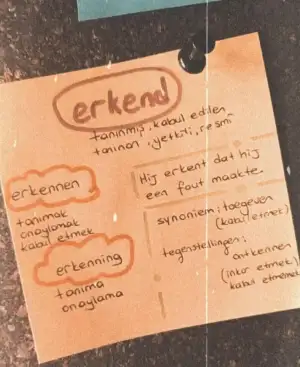 erkend
tanınmış, kabul edilen
tanınan, yetkili, resmî
erkennen
tanımak
onaylamak
kabul etmek
erkenning
tanıma
onaylama
Hij erkent dat hij
een fout maakte.
synoniem: toegeven
(kabul etmek)
tegenstellingen:
ontkennen
(inkar etmek)
kabul etmemek